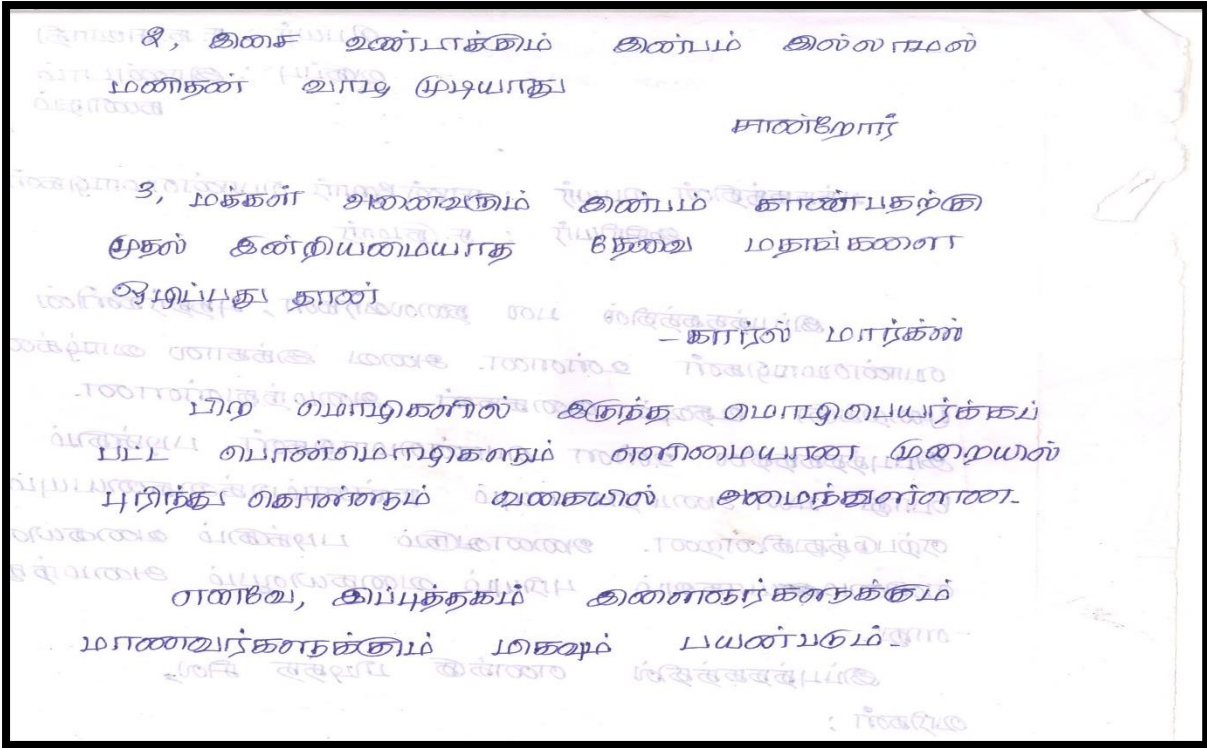 2, இசை உண்டாக்கும் இன்பம் இல்லாமல்
மனிதன் வாழ முடியாது
சான்றோர்
3, மக்கள் அனைவரும் இன்பம் காண்பதற்கு
முதல் இன்றியமையாத தேவை மதங்களை
ஒழிப்பது தான்
- கார்ல் மார்க்ஸ்
பிற மொழிகளில் இருந்த மொழிபெயர்க்கப்
பட்ட பொன்மொழிகளும் எளிமையான முறையில்
புரிந்து கொள்ளும் வகையில் அமைந்துள்ளன.
எனவே, இப்புத்தகம் இளைஞர்களுக்கும்
மாணவர்களுக்கும் மிகவும் பயன்படும்.